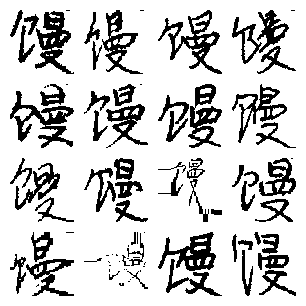 馒馒馒馒
馒馒馒馒
馒馒馒馒
馒馒馒馒